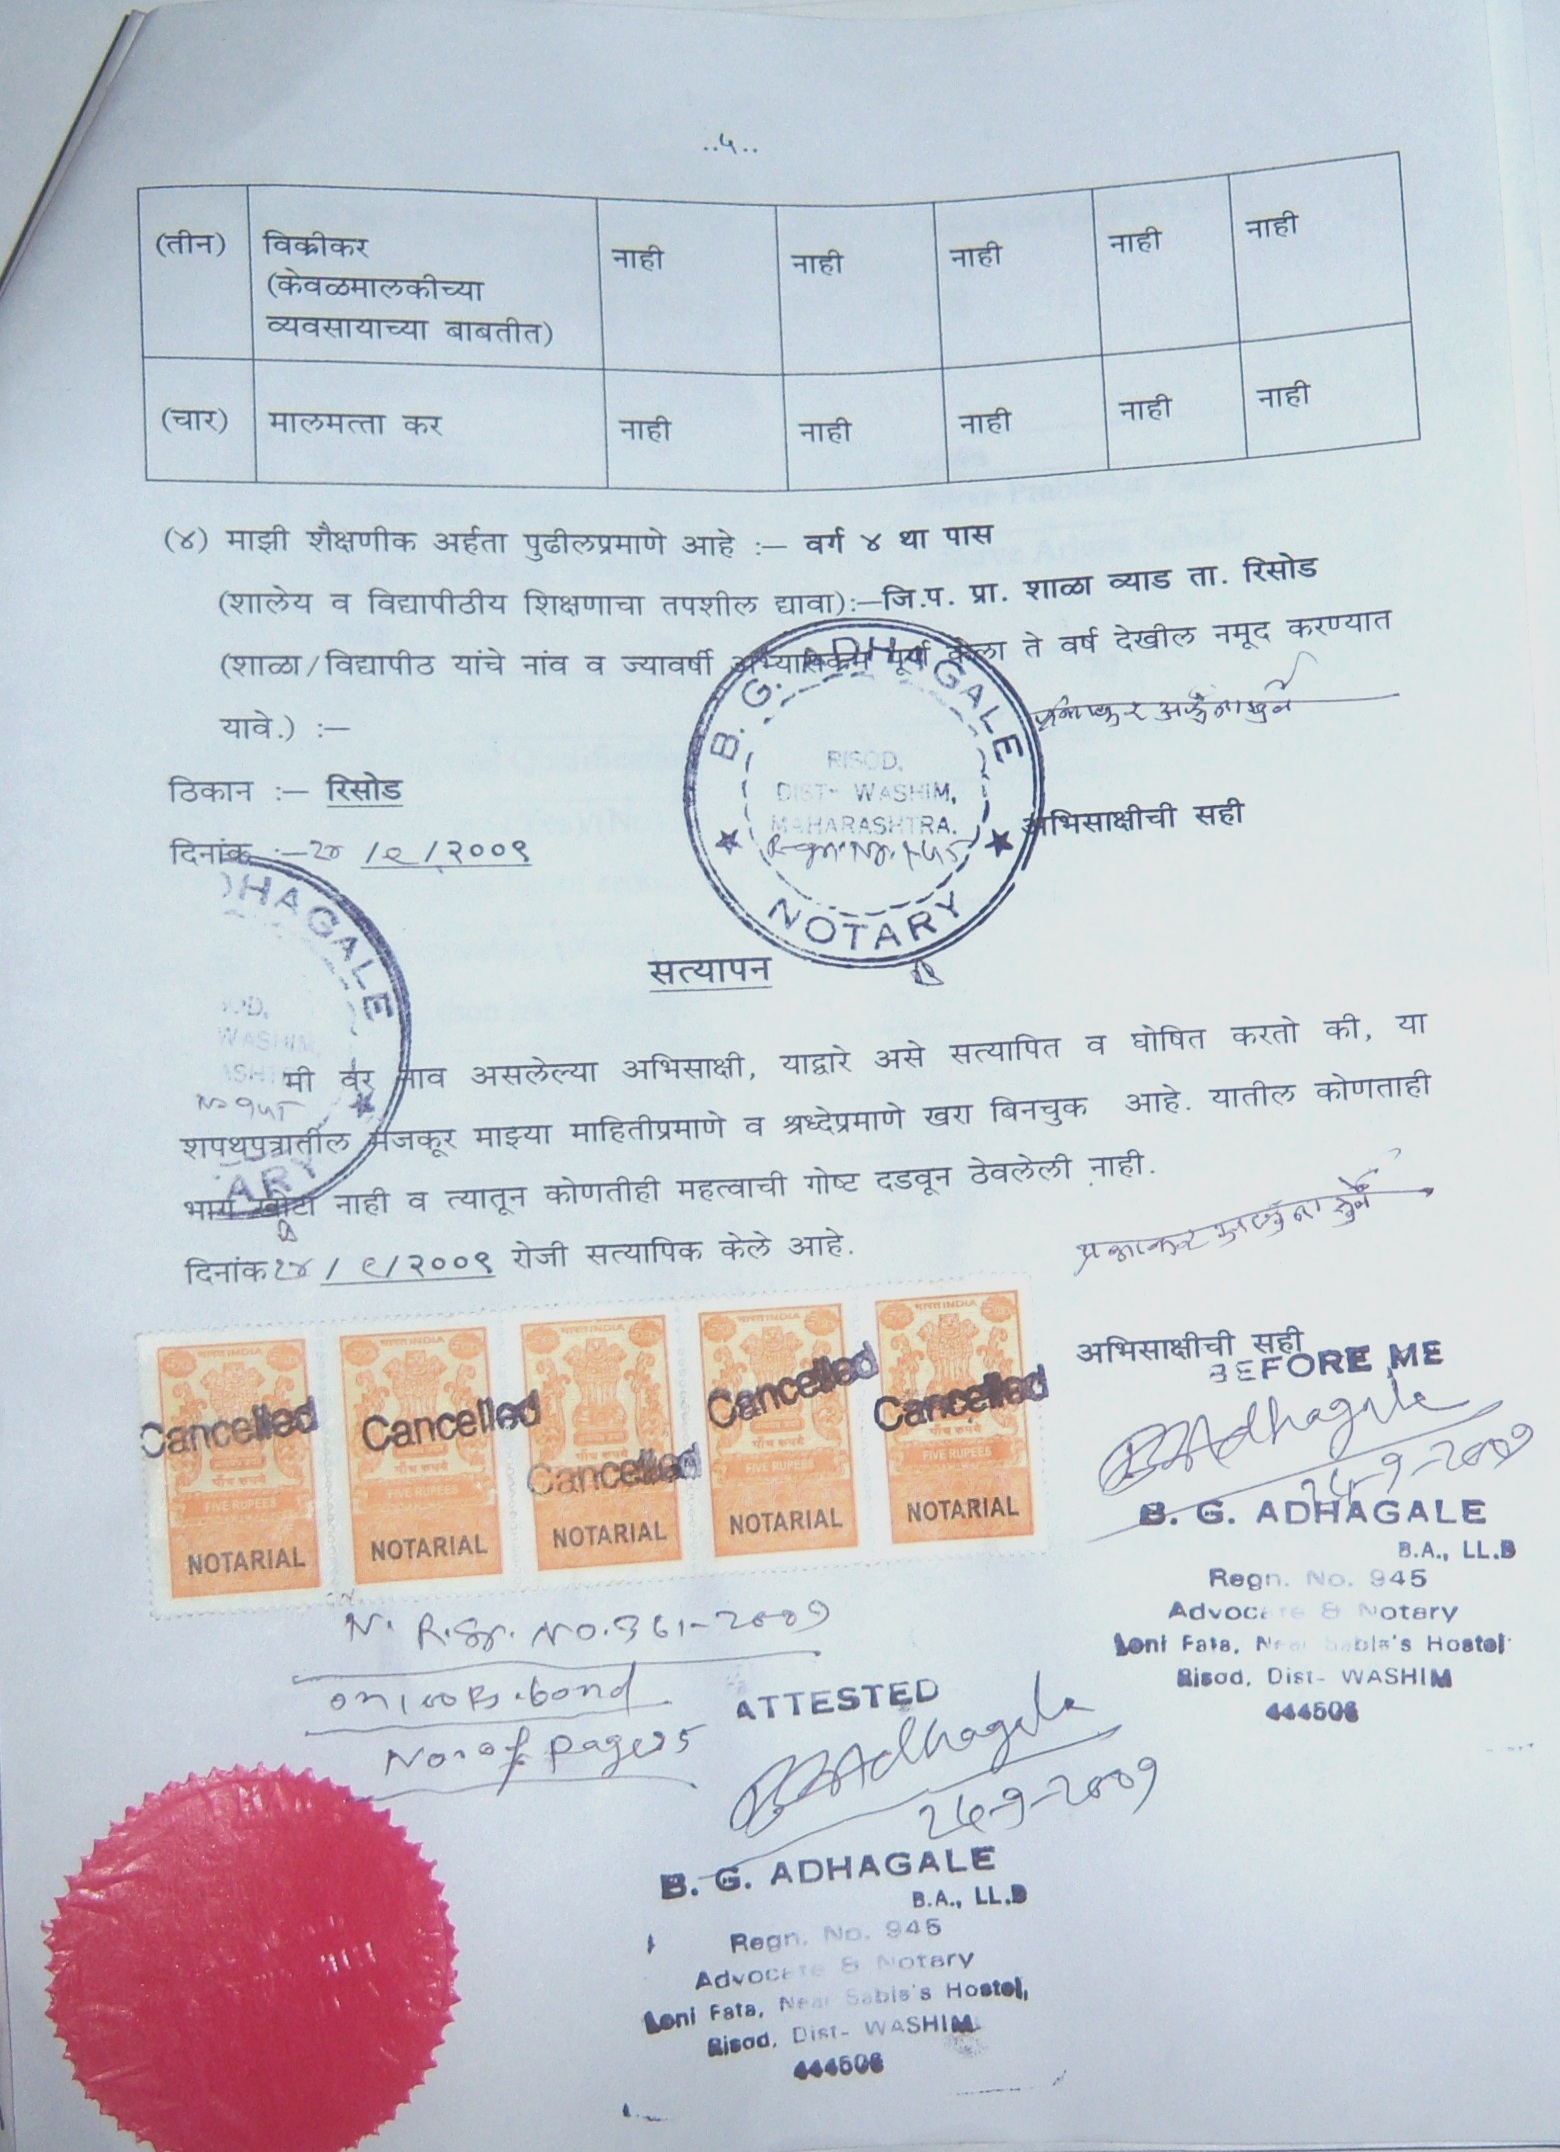 ..५..
(तीन) विक्रीकर नाही नाही नाही नाही नाही
(केवळमालकीच्या
व्यवसायाच्या बाबतीत)
(चार) मालमत्ता कर नाही नाही नाही नाही नाही
(४) माझी शैक्षणीक अर्हता पुढीलप्रमाणे आहे :— वर्ग ४ था पास
(शालेय व विद्यापीठीय शिक्षणाचा तपशील द्यावा):—जि.प. प्रा. शाळा व्याड ता. रिसोड
(शाळा/विद्यापीठ यांचे नांव व ज्यावर्षी अभ्यासक्रम पूर्ण केला ते वर्ष देखील नमूद करण्यात
यावे.) :—
B. G. ADHAGALE
RISOD,
DIST- WASHIM,
MAHARASHTRA.
NOTARY
ठिकान :— रिसोड
अभिसाक्षीची सही
दिनांक :— /९/२००९
DHAGALE
WASHIM
ARY
सत्यापन
मी वर नाव असलेल्या अभिसाक्षी, याद्वारे असे सत्यापित व घोषित करतो की, या
शपथपत्रातील मजकूर माझ्या माहितीप्रमाणे व श्रध्देप्रमाणे खरा बिनचुक आहे. यातील कोणताही
भाग खोटा नाही व त्यातून कोणतीही महत्वाची गोष्ट दडवून ठेवलेली नाही.
दिनांक /९/२००९ रोजी सत्यापिक केले आहे.
भारत INDIA भारत INDIA भारत INDIA भारत INDIA भारत INDIA
Cancelled Cancelled Cancelled Cancelled Cancelled
पाँच रुपये पाँच रुपये पाँच रुपये पाँच रुपये पाँच रुपये
FIVE RUPEES FIVE RUPEES FIVE RUPEES FIVE RUPEES FIVE RUPEES
NOTARIAL NOTARIAL NOTARIAL NOTARIAL NOTARIAL
अभिसाक्षीची सही
BEFORE ME
BGAdhagale
24-9-2009
B. G. ADHAGALE
B.A., LL.B
Regn. No. 945
Advocate & Notary
Loni Fata, Near Sabla's Hostel
Risod, Dist- WASHIM
444506
N. R. Sr. No. 361-2009
on 100 Rs. bond
No. of pages 5
ATTESTED
BGAdhagale
24-9-2009
B. G. ADHAGALE
B.A., LL.B
Regn. No. 945
Advocate & Notary
Loni Fata, Near Sabla's Hostel,
Risod, Dist- WASHIM
444506